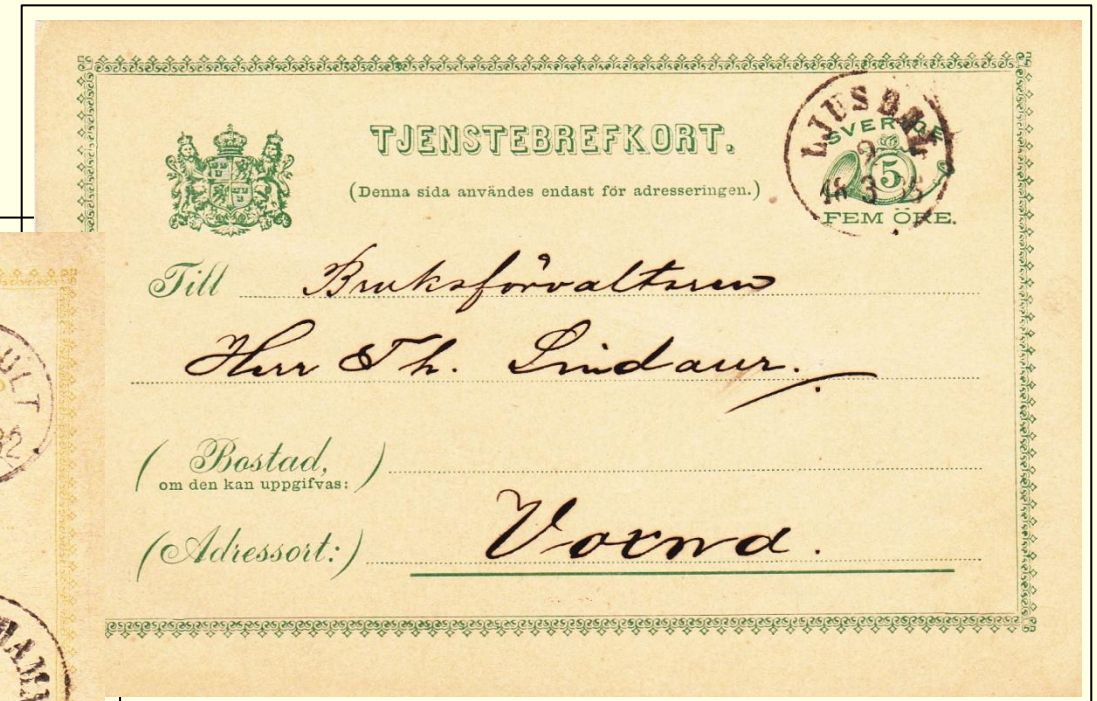 TJENSTEBREFKORT.
(Denna sida användes endast för adresseringen.)
SVERIGE
5
FEM ÖRE.
LJUSDAL
9
18 3 85
Till Bruksförvaltaren
Herr Th. Lindauer.
(Bostad,
om den kan uppgifvas:)
(Adressort:) Voxna.
ULT